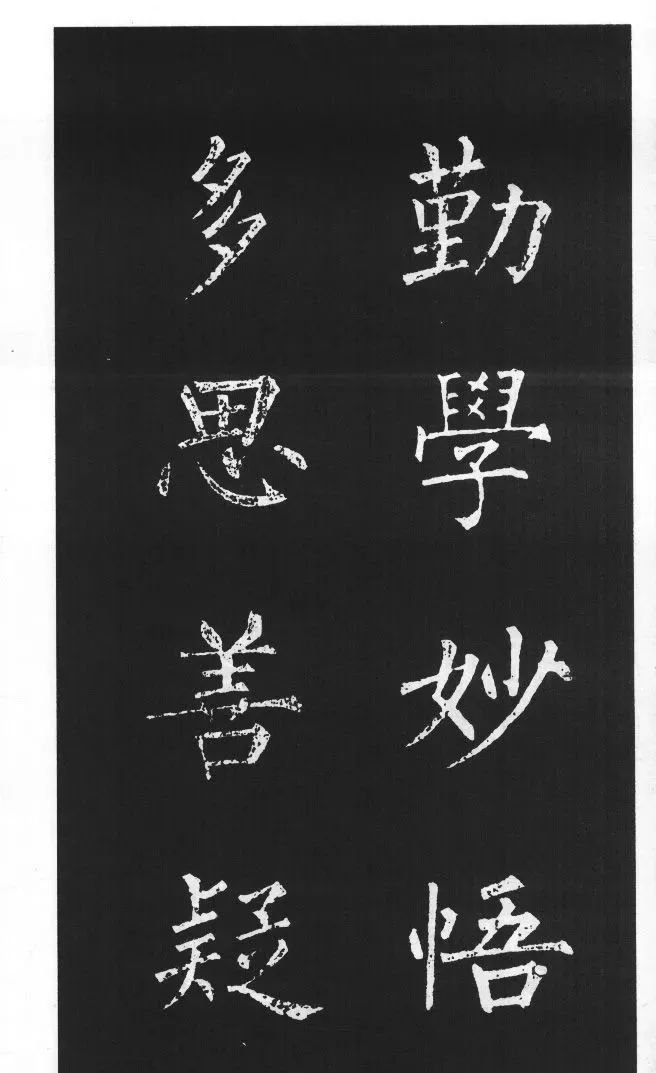 勤學妙悟
多思善疑